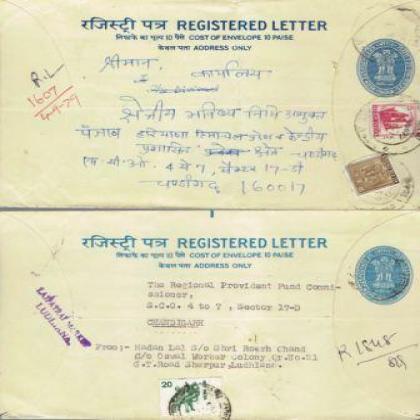 रजिस्ट्री पत्र REGISTERED LETTER
लिफाफे का मूल्य 10 पैसे COST OF ENVELOPE 10 PAISE
केवल पता ADDRESS ONLY
R.L
1607
4-9-79
श्रीमान
कार्यालय
क्षेत्रीय भविष्य निधि आयुक्त
पंजाब हरियाणा हिमाचल प्रदेश व केन्द्रीय
प्रशासित क्षेत्र चण्डीगढ़
एस. सी. ओ. 4 से 7, सैक्टर 17-डी
चण्डीगढ़ 160017
रजिस्ट्री पत्र REGISTERED LETTER
लिफाफे का मूल्य 10 पैसे COST OF ENVELOPE 10 PAISE
केवल पता ADDRESS ONLY
The Regional Provident Fund Commi-
ssioner,
S.C.O. 4 to 7, Sector 17-D
CHANDIGARH
From:- Madan Lal S/o Shri Roorh Chand
C/o Oswal Worker Colony, Qr.No.21
G.T.Road Sherpur, Ludhiana.
LUDHIANA
R 1848
20